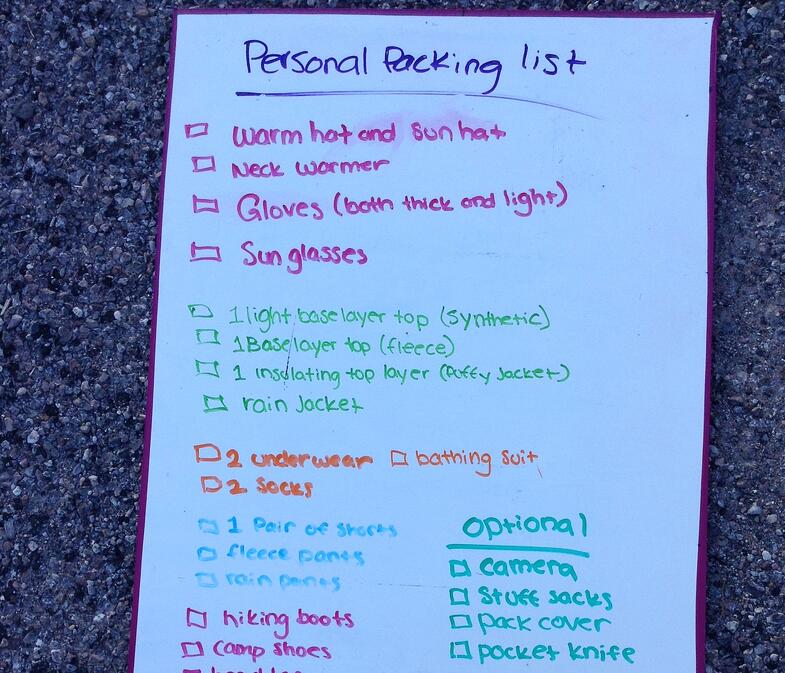 Personal Packing list
warm hat and sun hat
Neck warmer
Gloves (both thick and light)
Sunglasses
1 light baselayer top (synthetic)
1 Baselayer top (fleece)
1 insulating top layer (Puffy Jacket)
rain Jacket
2 underwear
bathing suit
2 socks
1 Pair of shorts
fleece pants
rain pants
hiking boots
camp shoes
optional
camera
stuff sacks
pack cover
pocket knife